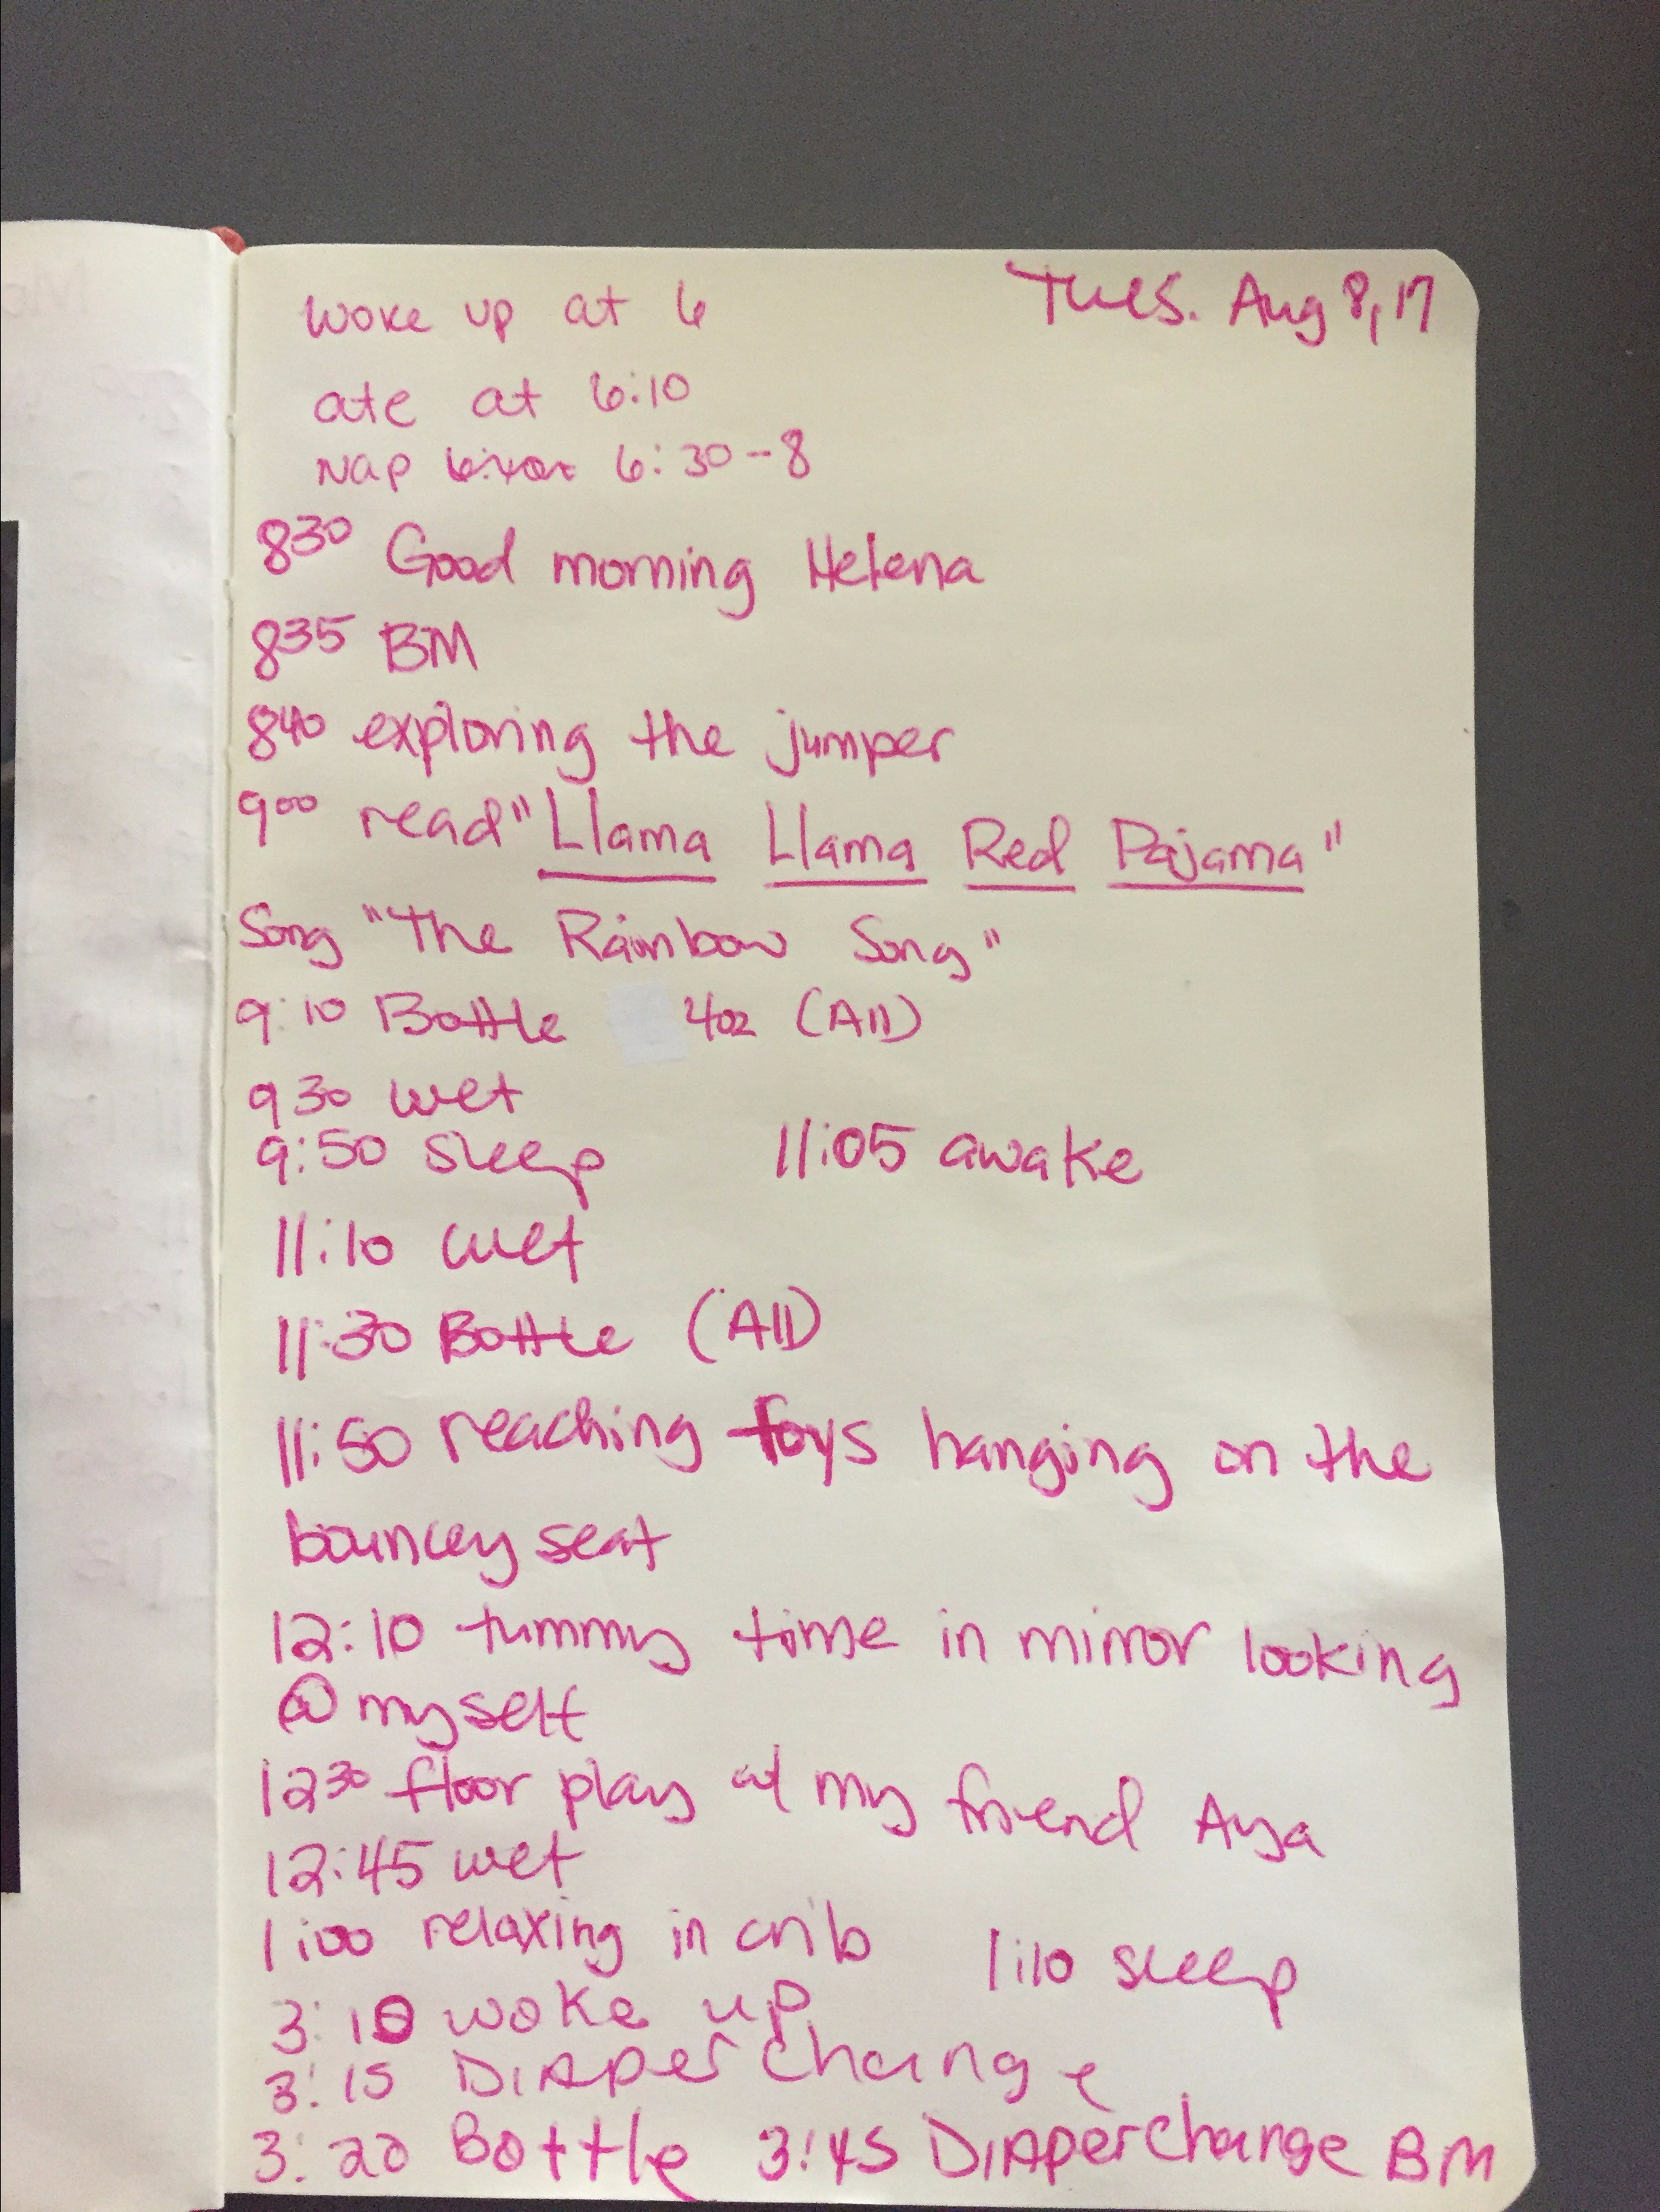 Tues. Aug 8, 17
woke up at 6
ate at 6:10
Nap 6:30-8
8:30 Good morning Helena
8:35 BM
8:40 exploring the jumper
9:00 read "Llama Llama Red Pajama"
Song "The Rainbow Song"
9:10 Bottle 4oz (All)
9 30 wet
9:50 sleep 11:05 awake
11:10 wet
11:30 Bottle (All)
11:50 reaching toys hanging on the
bouncey seat
12:10 tummy time in mirror looking
@ myself
12 30 floor play w/ my friend Aya
12:45 wet
1:00 relaxing in crib 1:10 sleep
3:10 woke up
3:15 Diaper Change
3:20 Bottle 3:45 Diaper Change BM